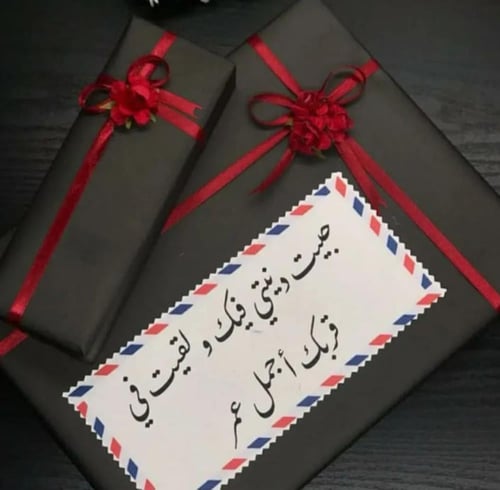 حبيت دنيتي فيك و لقيت في
قربك أجمل عمر